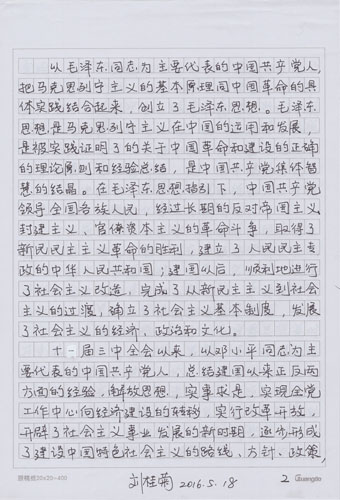 以毛泽东同志为主要代表的中国共产党人,
把马克思列宁主义的基本原理同中国革命的具
体实践结合起来,创立了毛泽东思想。毛泽东
思想是马克思列宁主义在中国的运用和发展,
是被实践证明了的关于中国革命和建设的正确
的理论原则和经验总结,是中国共产党集体智
慧的结晶。在毛泽东思想指引下,中国共产党
领导全国各族人民,经过长期的反对帝国主义、
封建主义、官僚资本主义的革命斗争,取得了
新民民主主义革命的胜利,建立了人民民主专
政的中华人民共和国;建国以后,顺利地进行
了社会主义改造,完成了从新民主主义到社会
主义的过渡,确立了社会主义基本制度,发展
了社会主义的经济、政治和文化。
十一届三中全会以来,以邓小平同志为主
要代表的中国共产党人,总结建国以来正反两
方面的经验,解放思想,实事求是,实现全党
工作中心向经济建设的转移,实行改革开放,
开辟了社会主义事业发展的新时期,逐步形成
了建设中国特色社会主义的路线、方针、政策,
原稿纸20×20=400
刘桂菊 2016.5.18
2 Guangbo